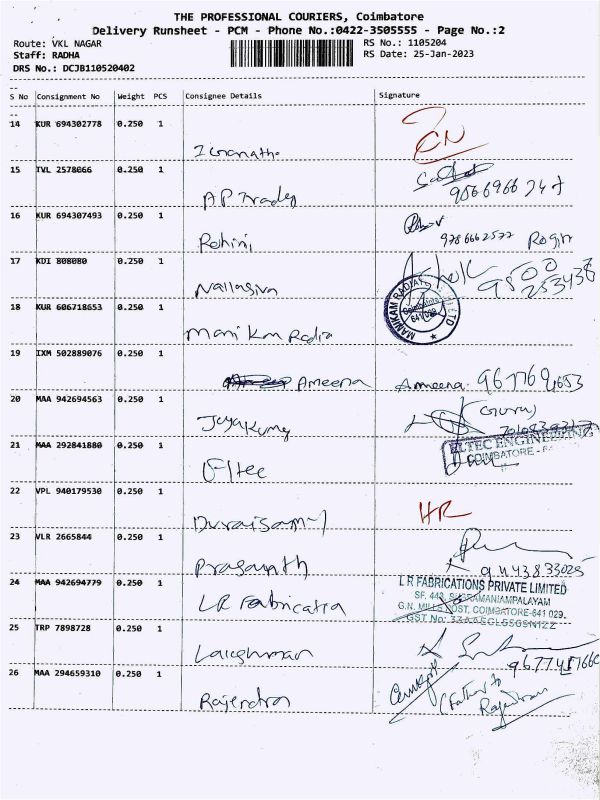 THE PROFESSIONAL COURIERS, Coimbatore
Delivery Runsheet - PCM - Phone No.:0422-3505555 - Page No.:2
Route: VKL NAGAR RS No.: 1105204
Staff: RADHA RS Date: 25-Jan-2023
DRS No.: DCJB110520402
S No Consignment No Weight PCS Consignee Details Signature
14 KUR 694302778 0.250 1 CN
15 TVL 2578066 0.250 1 AP Tradeg 9566966747
16 KUR 694307493 0.250 1 Rohini 9786662577 Rogin
17 KDI 808080 0.250 1 Nallasiva Ashok 9500 253438
18 KUR 606718653 0.250 1 Mani Km Radia MANIKAM RADIA Coimbatore LTD
19 IXM 502889076 0.250 1 Ameena Ameena
20 MAA 942694563 0.250 1 Jeyakumg (Guru)
21 MAA 292841880 0.250 1 Eltec ELTEC ENGINEERING
COIMBATORE
22 VPL 940179530 0.250 1 Duraisamy HR
23 VLR 2665844 0.250 1 Prasanth
24 MAA 942694779 0.250 1 LR Fabricatin L R FABRICATIONS PRIVATE LIMITED
SF. 443, SUBRAMANIAMPALAYAM
G.N. MILLS POST, COIMBATORE-641 029.
GST No:
25 TRP 7898728 0.250 1 Lakshman
26 MAA 294659310 0.250 1 Rajendra (Father to
Rajendran